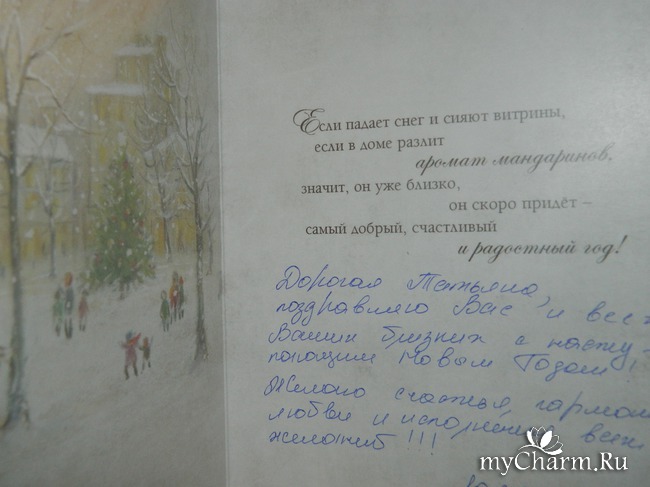 Если падает снег и сияют витрины,
если в доме разлит
аромат мандаринов,
значит, он уже близко,
он скоро придёт –
самый добрый, счастливый
и радостный год!
Дорогая Татьяна,
поздравляю Вас и всех
Ваших близких с насту-
пающим Новым Годом!!
Желаю счастья, гармон
любви и исполнения всех
желаний!!!
myCharm.Ru